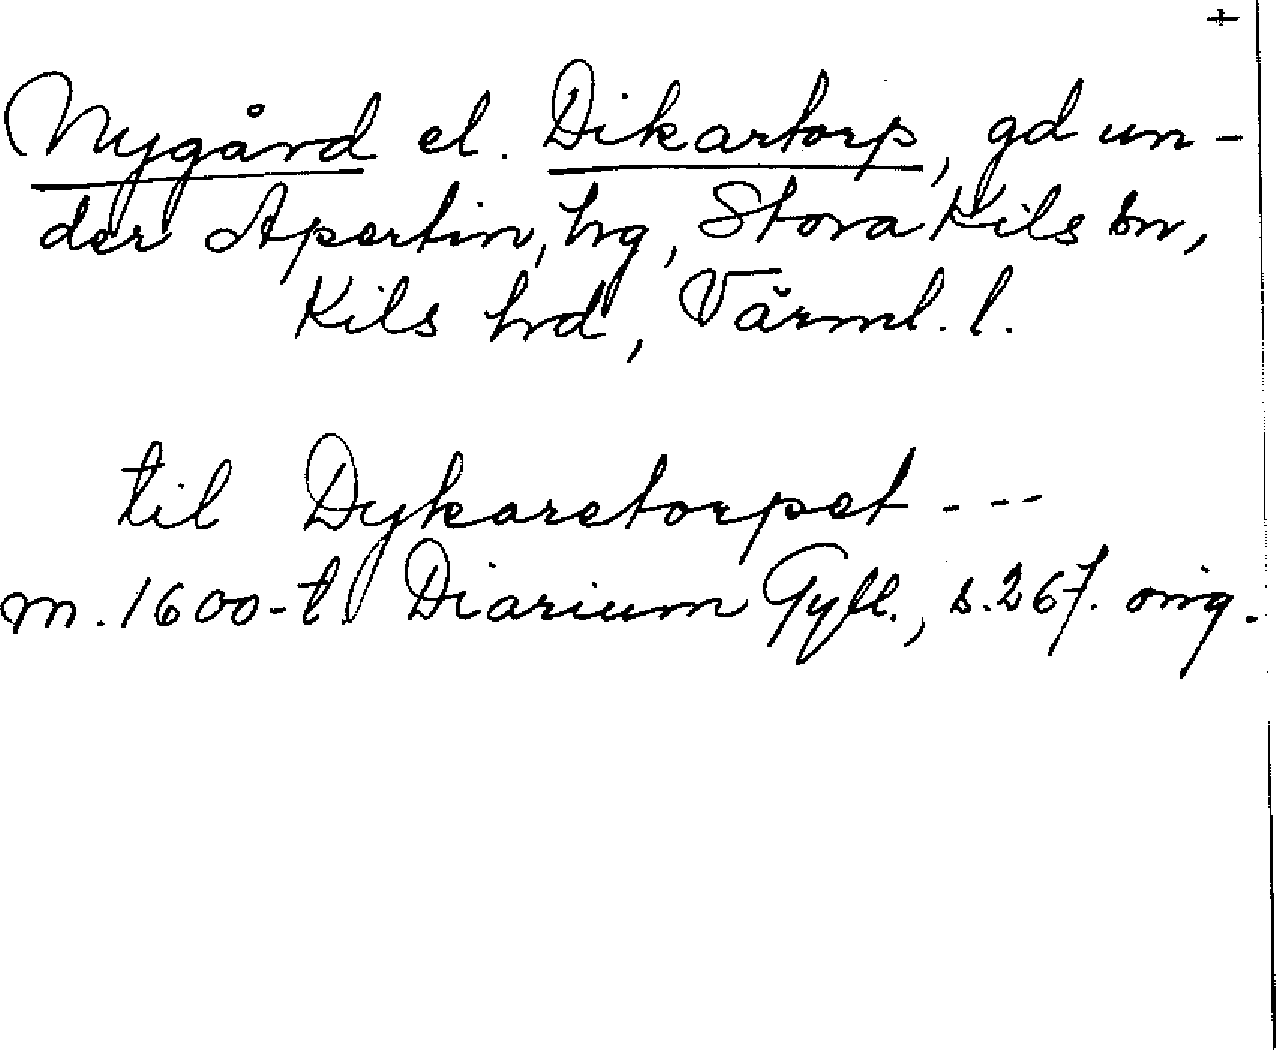 +
Nygård el. Dikartorp, gd un-
der Apertin, hg, Stora Kils sn,
Kils hd, Värml. l.
til Dykaretorpet ---
m. 1600-t Diarium Gyll., s. 267. orig.